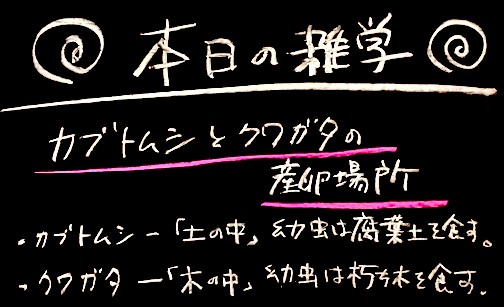 本日の雑学
カブトムシとクワガタの
産卵場所
・カブトムシー「土の中」幼虫は腐葉土を食す。
・クワガター「木の中」幼虫は朽ち木を食す.